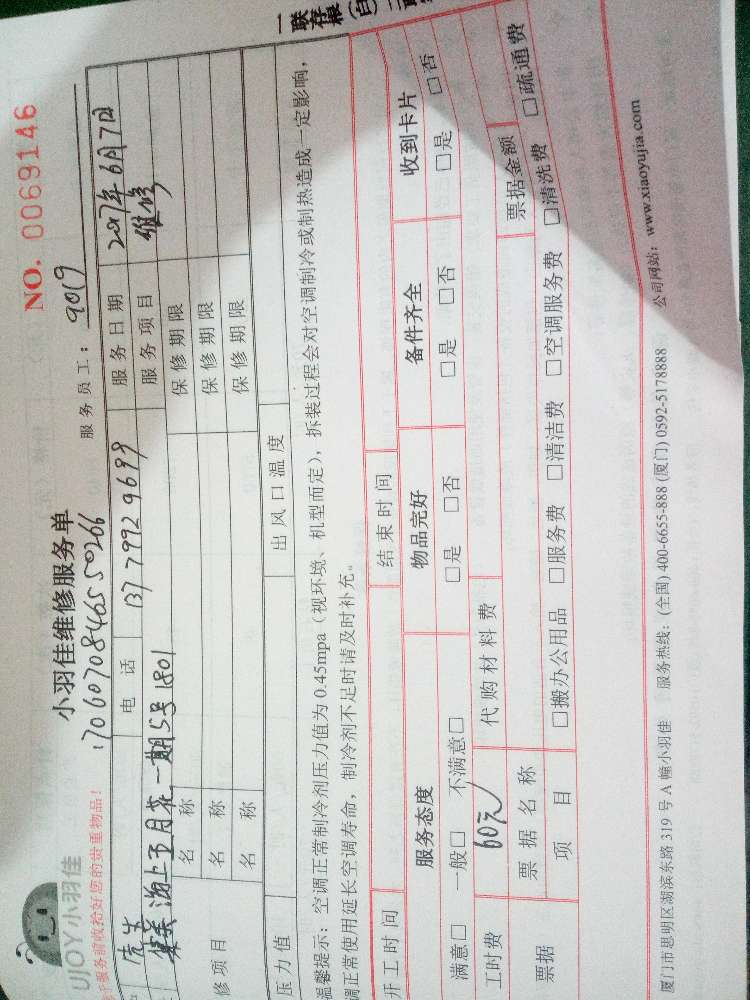 UJOY小羽佳
小羽佳维修服务单
NO. 0069146
1706070846550266
服务员工: 9019
服务前收拾好您的贵重物品!
电话 137 7992 9699 服务日期 2017年6月7日
海上五月花一期5号1801 服务项目 维修
修项目 名称 保修期限
名称 保修期限
名称 保修期限
压力值 出风口温度
温馨提示: 空调正常制冷剂压力值为 0.45mpa (视环境、机型而定), 拆装过程会对空调制冷或制热造成一定影响,
调正常使用延长空调寿命, 制冷剂不足时请及时补充。
一联存根(白)
开工时间 结束时间
服务态度 物品完好 备件齐全 收到卡片
满意□ 一般□ 不满意□ □是 □否 □是 □否 □是 □否
工时费 60元 代购材料费
票据 票据名称 票据金额
项目 □搬办公用品 □服务费 □清洁费 □空调服务费 □清洗费 □疏通费
厦门市思明区湖滨东路 319 号 A 幢小羽佳 服务热线: (全国) 400-6655-888 (厦门) 0592-5178888 公司网站: www.xiaoyujia.com